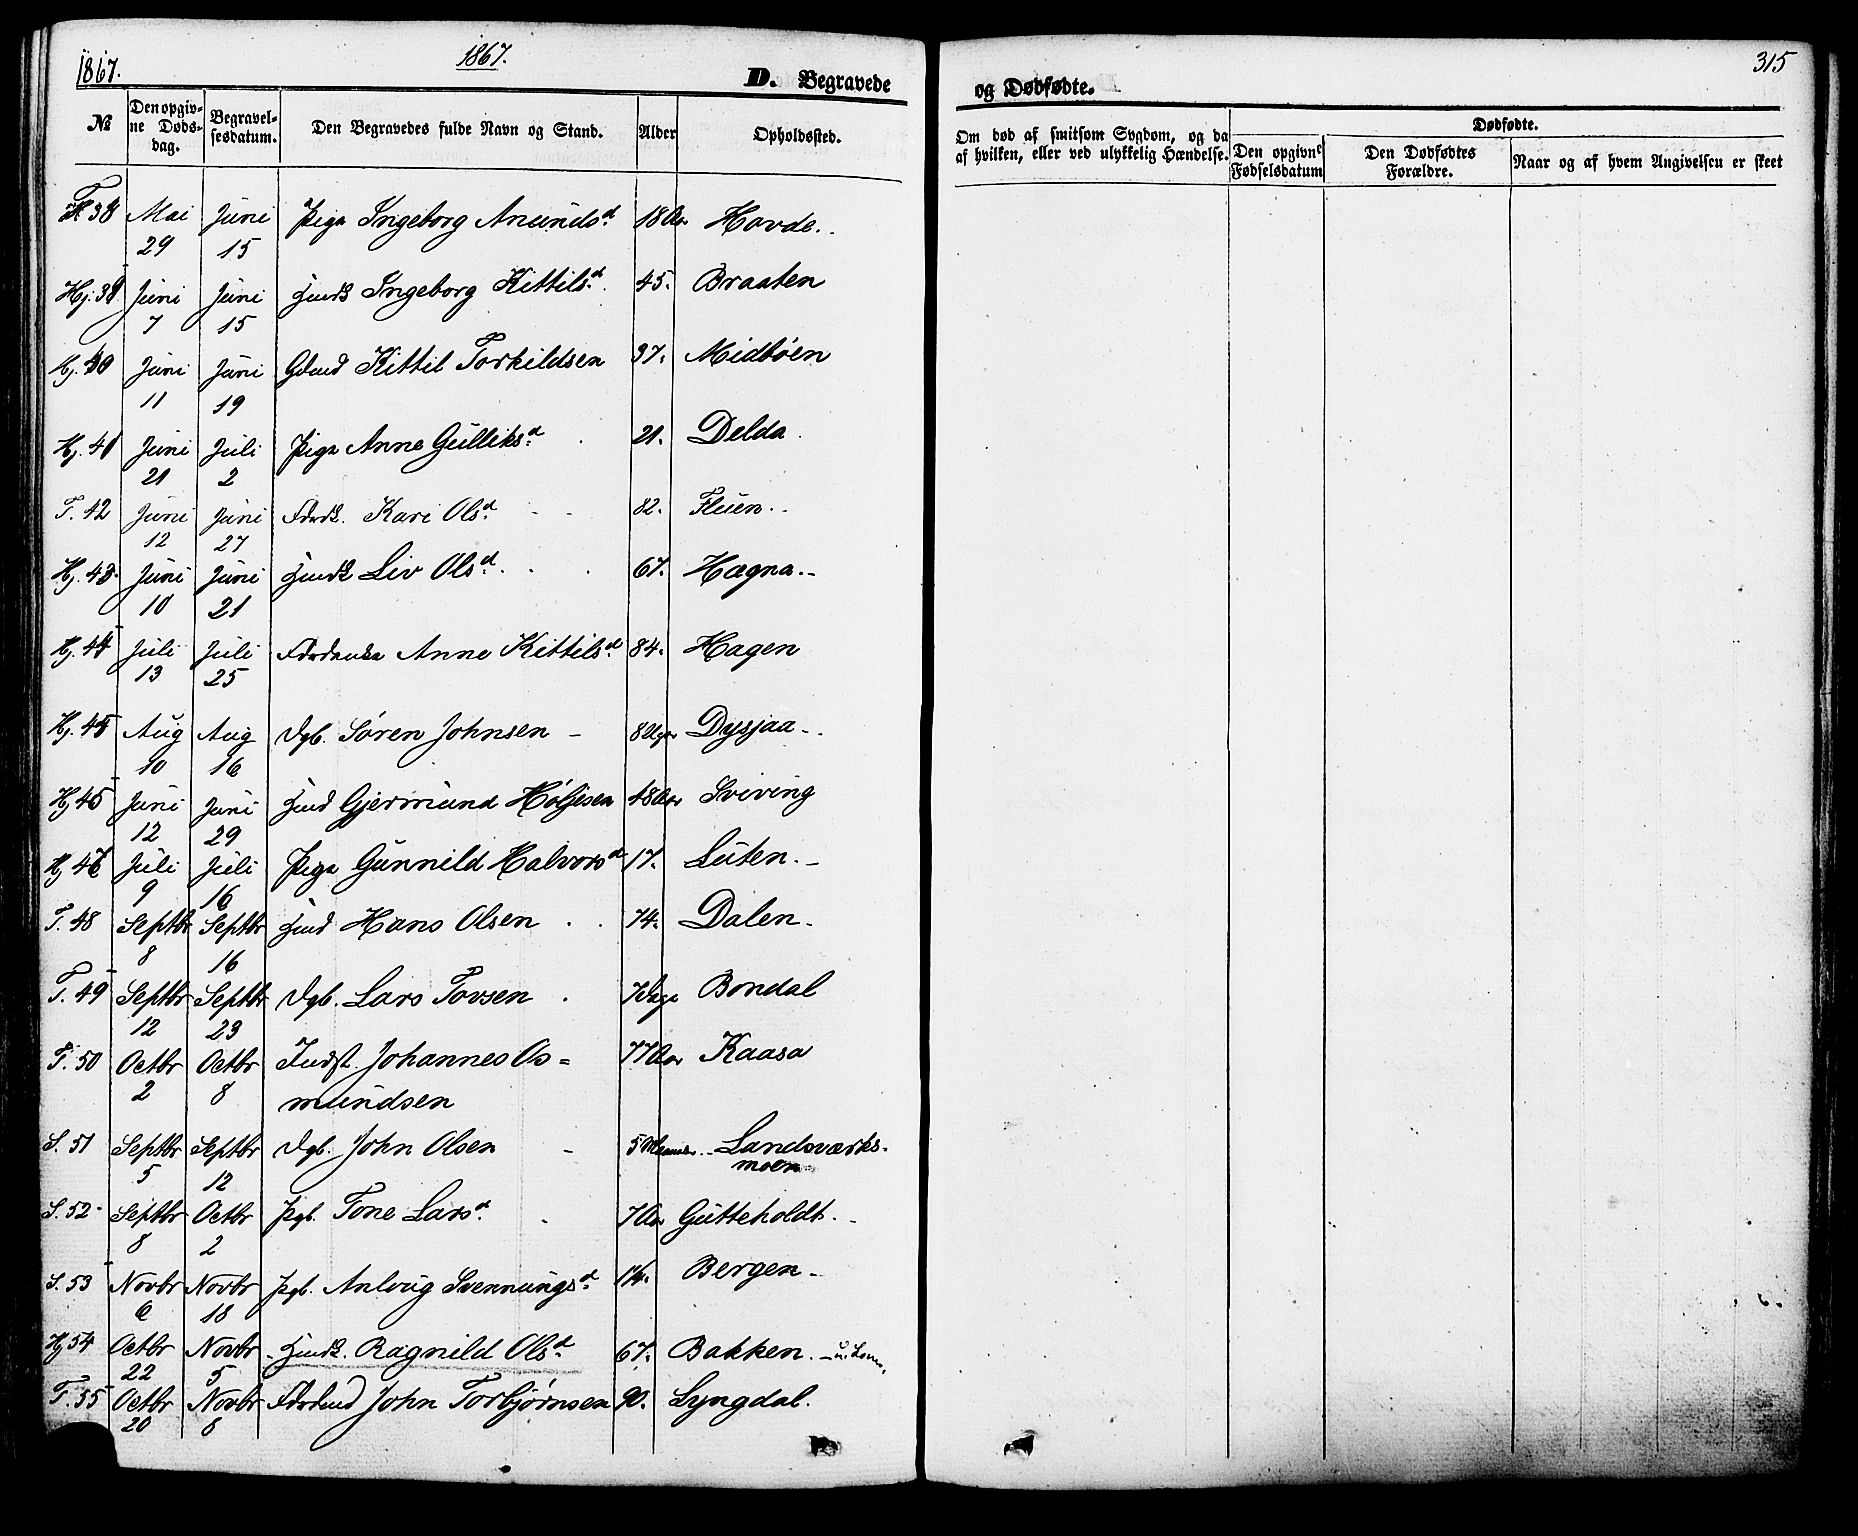 1867.
1867.
D. Begravede
№
Den opgiv-
ne Døds-
dag.
Begravel-
sesdatum.
Den Begravedes fulde Navn og Stand.
Alder
Opholdssted.
T 38 Mai Juni Pige Ingeborg Anunds.d 18 Aar Hovde.
29 15
Hj. 39 Juni Juni Ingeborg Kittils.d 45. Braaten
7 15
Hj. 40 Juni Juni Gdmd Kittil Torkildsen 37. Midbøen
11 19
Hj. 41 Juni Juli Pige Anne Gulliks.d 21. Delda.
21 2
T. 42 Juni Juni Kari Ols.d 82. Fluen.
12 27
Hj. 43. Juni Juni Liv Ols.d 67. Hægna.
10 21
Hj. 44 Juli Juli Anne Kittils.d 84. Hagen
13 25
Hj. 45 Aug Aug Dgb. Søren Johnsen 8 Dysjaa
10 16
Hj 46 Juni Juni Gjermund Høljesen 48 Aar Sviving
12 29
Hj 47 Juli Juli Pige Gunnild Halvors.d 17. Luten.
9 16
T. 48 Septbr Septbr Hans Olsen 74. Dalen.
8 16
T. 49 Septbr Septbr Dgb. Lars Tovsen 7 Dage Bondal
12 23
T. 50 Octbr Octbr Indst. Johannes Os= 77 Aar Kaasa
2 8
mundsen
S. 51 Septbr Septbr Dgb. John Olsen 5 Landsværks-
moen
5 12
S. 52 Septbr Octbr Pgb. Tone Lars.d 7 Aar Gutteholdt.
8 2
S. 53 Novbr Novbr Pgb. Anlaug Svennungs.d 14. Bergen
6 18
Hj 54 Octbr Novbr Ragnild Ols.d 67. Bakken.
22 5
T. 55 Octbr Novbr John Torbjørnsen 90. Lyngdal.
20 8
315
og Dødfødte.
Om død af smitsom Sygdom, og da
af hvilken, eller ved ulykkelig Hændelse.
Dødfødte.
Den opgivne
Fødselsdatum
Den Dødfødtes
Forældre.
Naar og af hvem Angivelsen er skeet